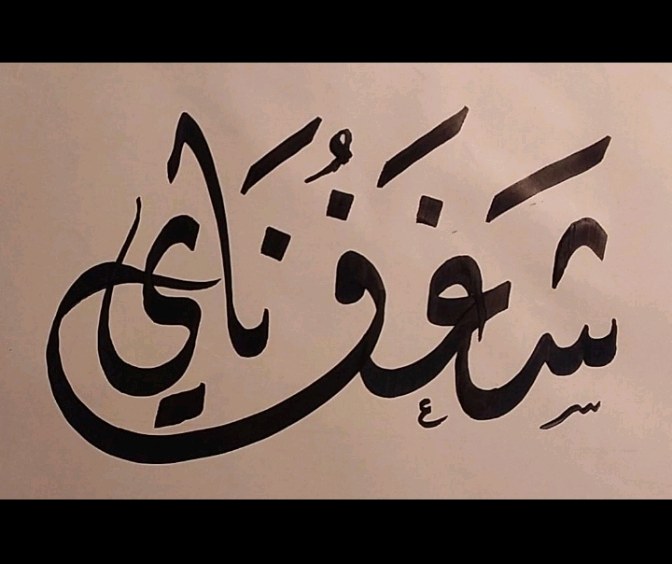 شَغَفُ نَاي